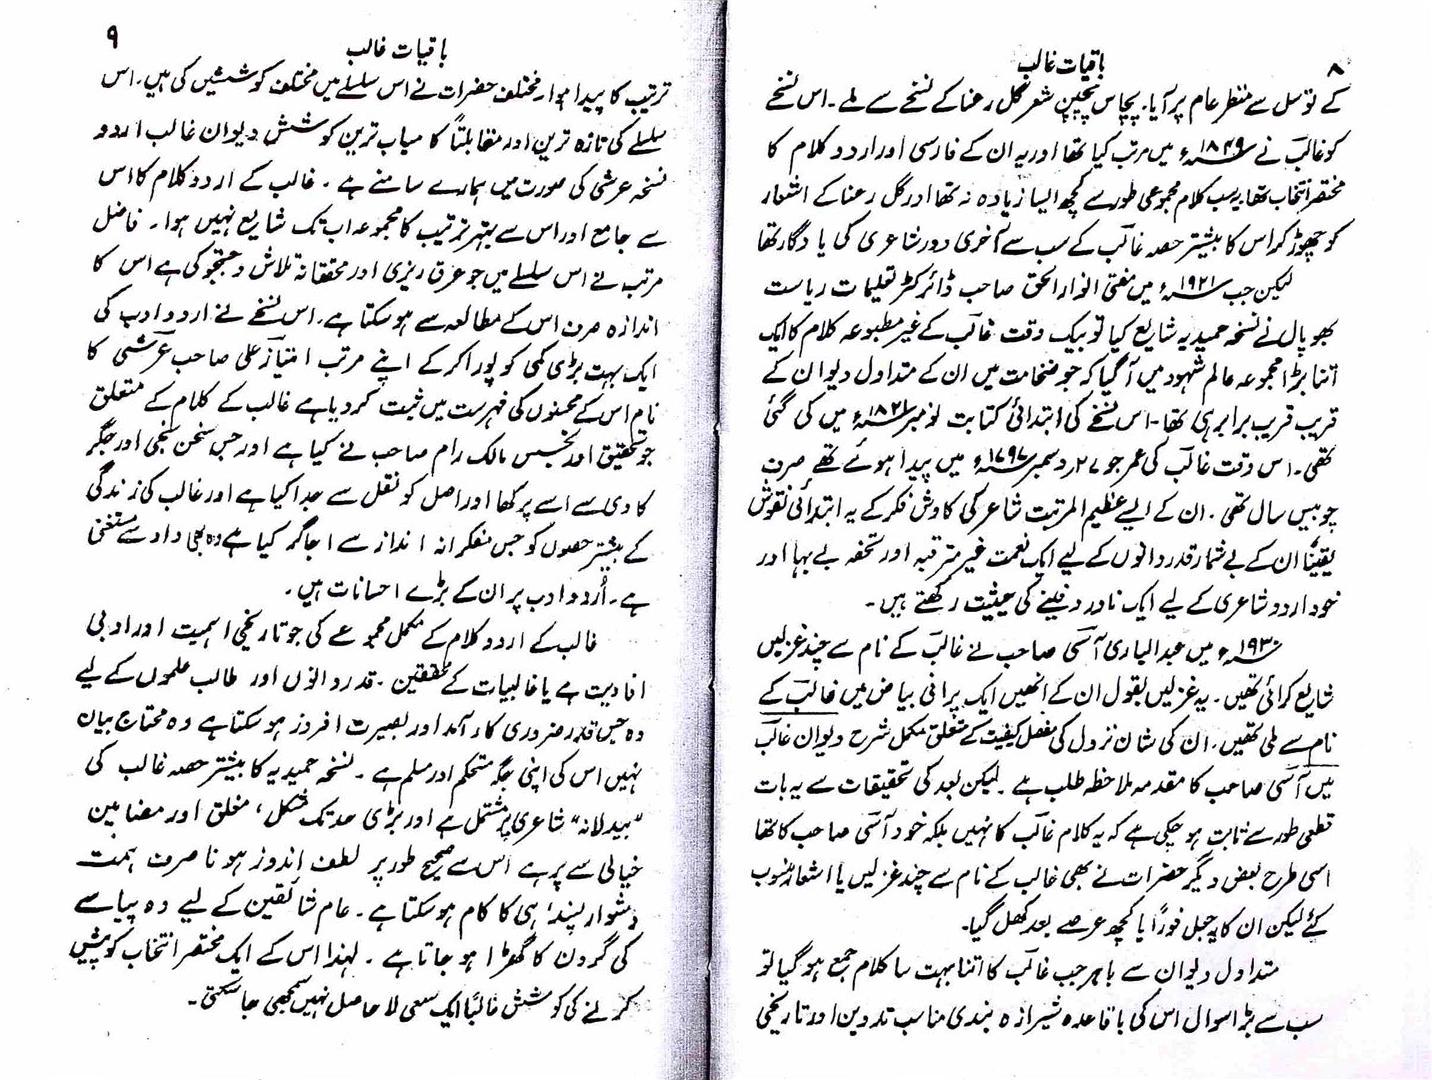 ۸
باقیات غالب
کے توسل سے منظر عام پر آیا۔ پچاس پچپن شعر گل رعنا کے نسخے سے ملے۔ اس نسخے
کو غالب نے ۱۸۴۹ء میں مرتب کیا تھا اور یہ ان کے فارسی اور اردو کلام کا
مختصر انتخاب تھا۔ یہ سب کلام مجموعی طور سے کچھ ایسا زیادہ نہ تھا اور گل رعنا کے اشعار
کو چھوڑ کر اس کا بیشتر حصہ غالب کے سب سے آخری دور شاعری کی یادگار تھا
لیکن جب ۱۹۲۱ء میں مفتی انوار الحق صاحب ڈائرکٹر تعلیمات ریاست
بھوپال نے نسخہ حمیدیہ شایع کیا تو بیک وقت غالب کے غیر مطبوعہ کلام کا ایک
اتنا بڑا مجموعہ عالم شہود میں آ گیا کہ جو ضخامت میں ان کے متداول دیوان کے
قریب قریب برابر ہی تھا۔ اس نسخے کی ابتدائی کتابت نومبر ۱۸۲۱ء میں کی گئی
تھی۔ اس وقت غالب کی عمر جو ۲۷ر دسمبر ۱۷۹۷ء میں پیدا ہوئے تھے صرف
چوبیس سال تھی۔ ان کے ایسے عظیم المرتبت شاعر کی کاوش فکر کے یہ ابتدائی نقوش
یقیناً ان کے بے شمار قدر دانوں کے لیے ایک نعمت غیر مترقبہ اور تحفہ بے بہا اور
خود اردو شاعری کے لیے ایک نادر دفینے کی حیثیت رکھتے ہیں۔
۱۹۳۰ء میں عبدالباری آسی صاحب نے غالب کے نام سے چند غزلیں
شایع کرائی تھیں۔ یہ غزلیں بقول ان کے انھیں ایک پرانی بیاض میں غالب کے
نام سے ملی تھیں۔ ان کی شان نزول کی مفصل کیفیت کے متعلق مکمل شرح دیوان غالب
میں آسی صاحب کا مقدمہ ملاحظہ طلب ہے۔ لیکن بعد کی تحقیقات سے یہ بات
قطعی طور سے ثابت ہو چکی ہے کہ یہ کلام غالب کا نہیں بلکہ خود آسی صاحب کا تھا
اسی طرح بعض دیگر حضرات نے بھی غالب کے نام سے چند غزلیں یا اشعار منسوب
کئے لیکن ان کا یہ جعل فوراً یا کچھ عرصے بعد کھل گیا۔
متداول دیوان سے باہر جب غالب کا اتنا بہت سا کلام جمع ہو گیا تو
سب سے بڑا سوال اس کی باقاعدہ شیرازہ بندی مناسب تدوین اور تاریخی
۹
باقیات غالب
ترتیب کا پیدا ہوا۔ مختلف حضرات نے اس سلسلے میں مختلف کوششیں کی ہیں۔ اس
سلسلے کی تازہ ترین اور مقابلتاً کامیاب ترین کوشش دیوان غالب اردو
نسخہ عرشی کی صورت میں ہمارے سامنے ہے۔ غالب کے اردو کلام کا اس
سے جامع اور اس سے بہتر ترتیب کا مجموعہ اب تک شایع نہیں ہوا۔ فاضل
مرتب نے اس سلسلے میں جو عرق ریزی اور محققانہ تلاش و جستجو کی ہے اس کا
اندازہ صرف اس کے مطالعہ سے ہو سکتا ہے۔ اس نسخے نے اردو ادب کی
ایک بہت بڑی کمی کو پورا کر کے اپنے مرتب امتیاز علی صاحب عرشی کا
نام اس کے محسنوں کی فہرست میں ثبت کر دیا ہے غالب کے کلام کے متعلق
جو تحقیق اور تجسس مالک رام صاحب نے کیا ہے اور جس سخن سنجی اور جگر
کاوی سے اسے پرکھا اور اصل کو نقل سے جدا کیا ہے اور غالب کی زندگی
کے بیشتر حصوں کو جس مفکرانہ انداز سے اجاگر کیا ہے وہ بھی داد سے مستغنی
ہے۔ اُردو ادب پر ان کے بڑے احسانات ہیں۔
غالب کے اردو کلام کے مکمل مجموعے کی جو تاریخی اہمیت اور ادبی
افادیت ہے یا غالبیات کے محققین۔ قدر دانوں اور طالب علموں کے لیے
وہ جس قدر ضروری کار آمد اور بصیرت افروز ہو سکتا ہے وہ محتاج بیان
نہیں اس کی اپنی جگہ مستحکم اور مسلم ہے۔ نسخہ حمیدیہ کا بیشتر حصہ غالب کی
"بیدلانہ" شاعری پر مشتمل ہے اور بڑی حد تک مشکل، مغلق اور مضامین
خیالی سے پر ہے اس سے صحیح طور پر لطف اندوز ہونا صرف ہمت
دشوار پسند ہی کا کام ہو سکتا ہے۔ عام شائقین کے لیے وہ پیاسے
کی گردن کا گھڑا ہو جاتا ہے۔ لہٰذا اس کے ایک مختصر انتخاب کو پیش
کرنے کی کوشش غالباً ایک سعی لا حاصل نہیں سمجھی جا سکتی۔